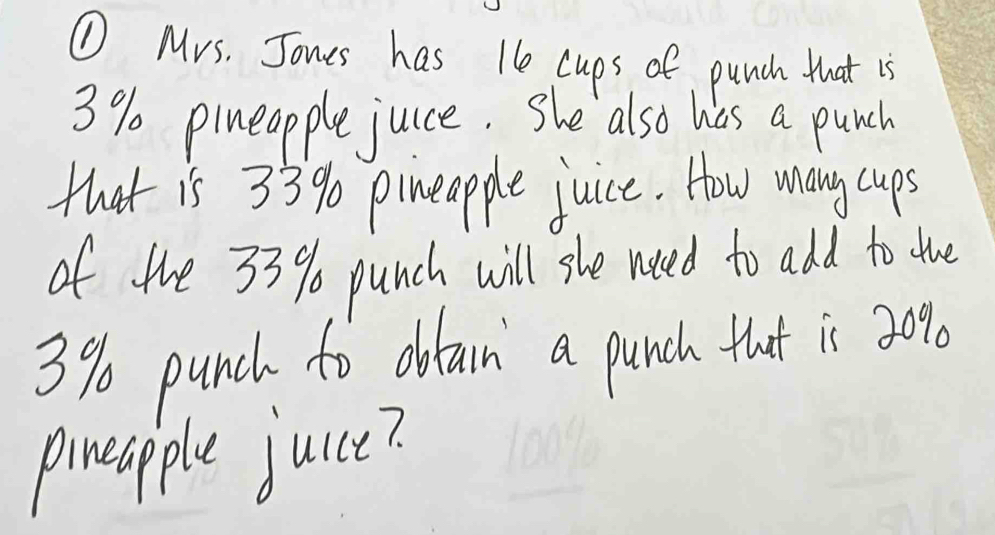 ① Mrs. Jones has 16 cups of punch that is
3% pineapple juice. She also has a punch
that is 33% pineapple juice. How many cups
of the 33% punch will she need to add to the
3% punch to obtain a punch that is 20%
pineapple juice?
100%
50%